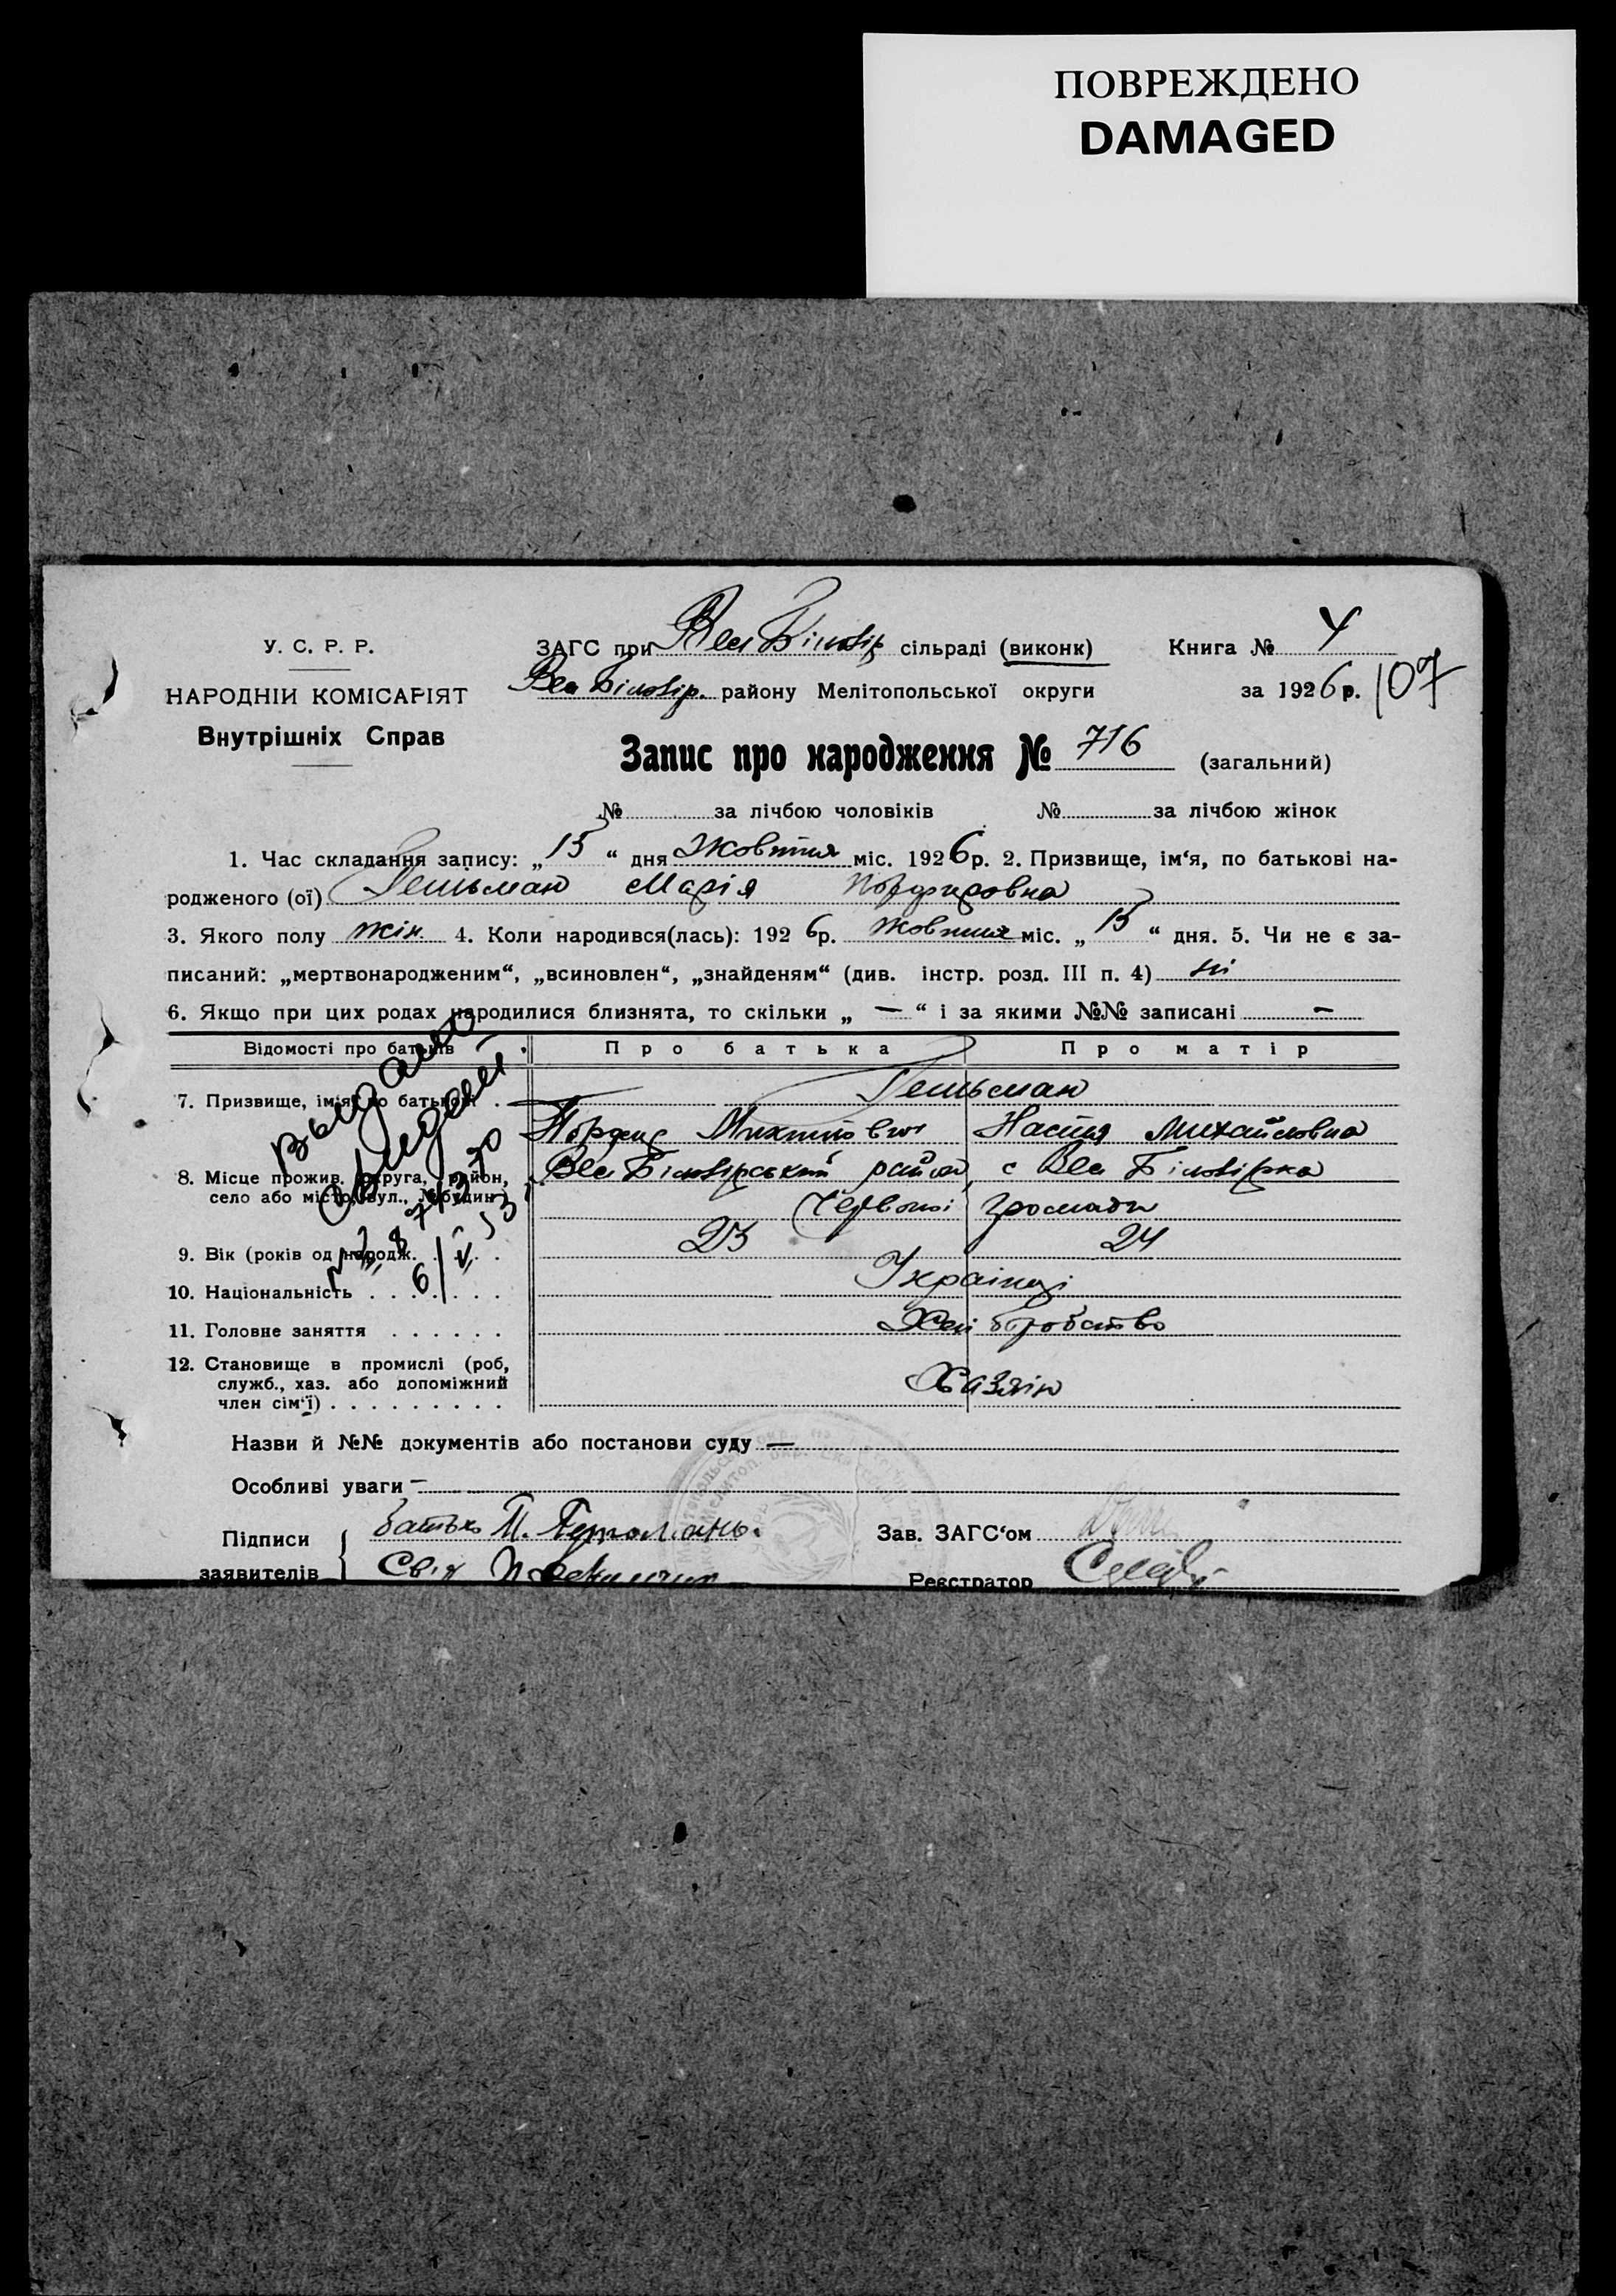 ПОВРЕЖДЕНО
DAMAGED
У. С. Р. Р.
НАРОДНІЙ КОМІСАРІЯТ
Внутрішніх Справ
ЗАГС при Вел Білозір сільраді (виконк)
Книга № 4
Вел Білозір. району Мелітопольської округи
за 1926 р. 107
Запис про народження № 716 (загальний)
№ за лічбою чоловіків № за лічбою жінок
1. Час складання запису: „15“ дня Жовтня міс. 1926 р. 2. Призвище, ім‘я, по батькові на-
родженого (ої) Гетьман Марія Порфировна
3. Якого полу жін. 4. Коли народився(лась): 1926 р. Жовтня міс. „15“ дня. 5. Чи не є за-
писаний: „мертвонародженим“, „всиновлен“, „знайденям“ (див. інстр. розд. III п. 4) ні
6. Якщо при цих родах народилися близнята, то скільки „ — “ і за якими №№ записані —
Відомості про батьків
Про батька
Про матір
7. Призвище, ім‘я, по батькові .
Гетьман
Порфир Михайлович
Настя Михайловна
8. Місце прожив. округа, район,
село або місто, вул., № будин.)
Вел Білозірський район, с Вел Білозірка
Червоної громади
9. Вік (років од народж. . . . .
23
24
10. Національність . . . . . . .
Українці
11. Головне заняття . . . . . .
Хліборобство
12. Становище в промислі (роб,
служб., хаз. або допоміжний
член сім‘ї) . . . . . . . . .
Хазяїн
выдано
6/V 53
Назви й №№ документів або постанови суду —
Особливі уваги —
Підписи
заявителів
батько П. Гетьмань.
Свід
Зав. ЗАГС‘ом
Реєстратор